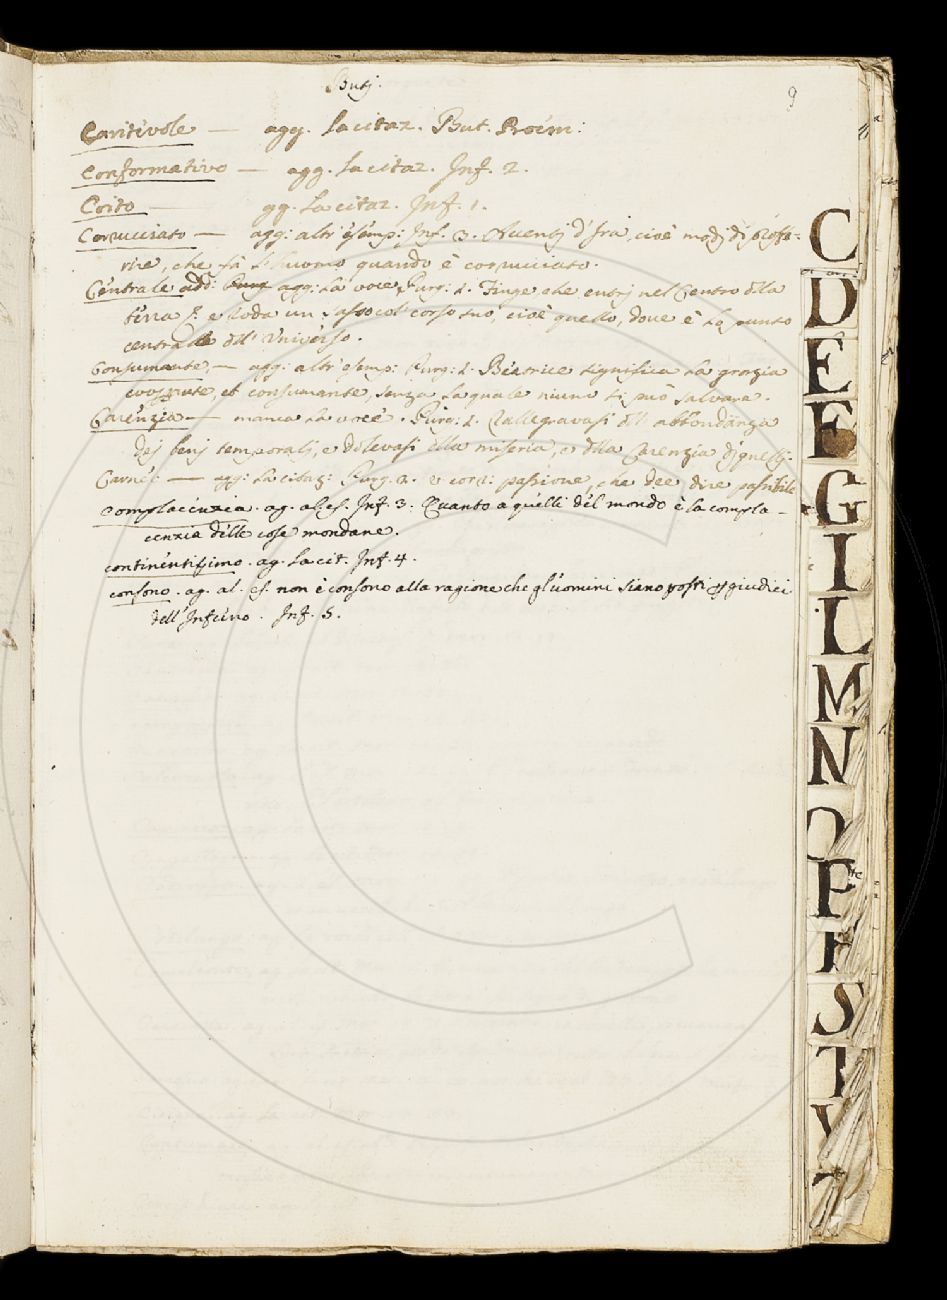 Butj.
9
Caritivole — agg. la citaz. But. Proem:
Conformativo — agg. la citaz. Inf. 2.
Coito — gg. La citaz. Inf. 1.
Corucciato — agg: altr' esemp: Inf. 3. Aventj d'Ira, cioè modj dj profe-
rire, che fà l'huomo quando è corucciato.
Céntrale add: agg: la voce Purg: 1. Finge che entrj nel Centro dlla
terra e roda un sasso col corso suo, cioè quello, dove è lo punto
centrale dll' Universo.
Consumante, — agg: altr' esemp: Purg: 1. Beatrice significa la grazia
cooperante, et consumante, senza la quale niuno si può salvare.
Carénzia — manca la voce. Purg: 1. Rallegravasi dll' abbondanza
dej benj temporalj, e dolevasi dlla miseria, e dlla Carenzia dj quellj.
Carnéi — agg: la citaz: Purg. 2. e corr: passione, che dee dire passibile
Complacenzia. ag. al. es. Inf. 3. Quanto a quelli del mondo è la compla-
cenzia delle cose mondane.
continentissimo. ag. la cit. Inf. 4.
consono. ag. al. es. non è consono alla ragione che gl' uomini siano posti p giudici
dell' Inferno. Inf. 5.
C
D
E
F
G
I
L
M
N
O
P
S
T
V